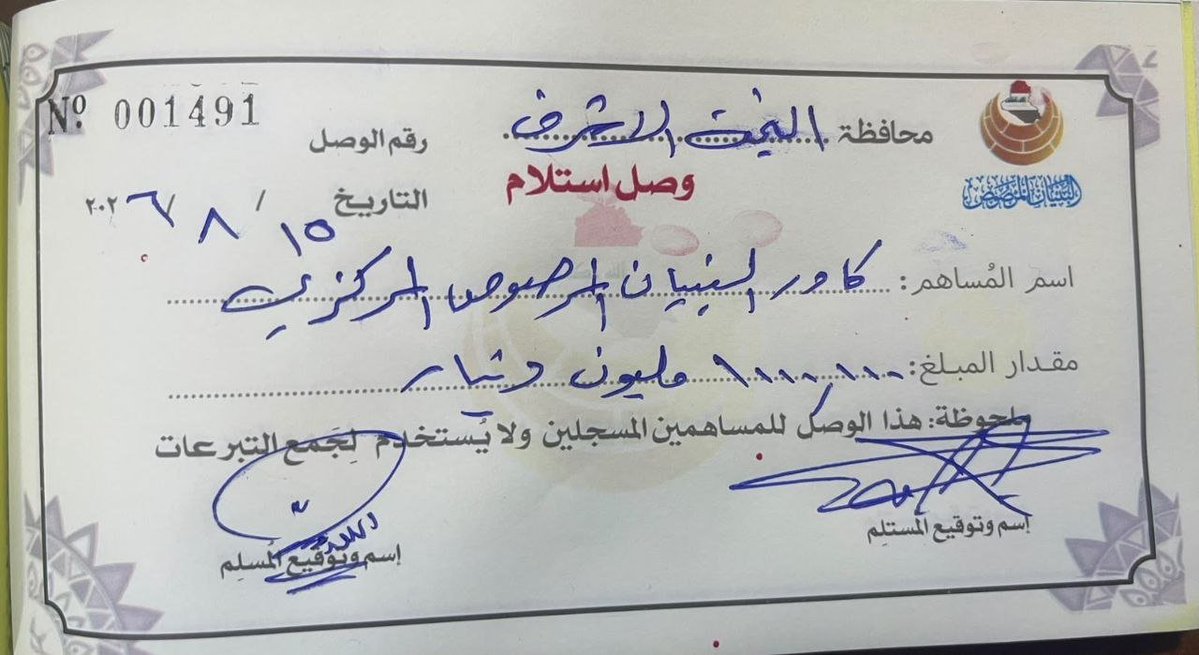 محافظة النجف الاشرف
رقم الوصل Nº 001491
البنيان المرصوص
وصل استلام
التاريخ ١٥ / ٨ / ٢٠٢٦
اسم المُساهم: كادر البنيان المرصوص المركزي
مقدار المبلغ: ١٠٠٠,٠٠٠ مليون دينار
ملحوظة: هذا الوصل للمساهمين المسجلين ولا يُستخدم لجَمع التبرعات
إسم وتوقيع المستلِم
إسم وتوقيع المُسلِم